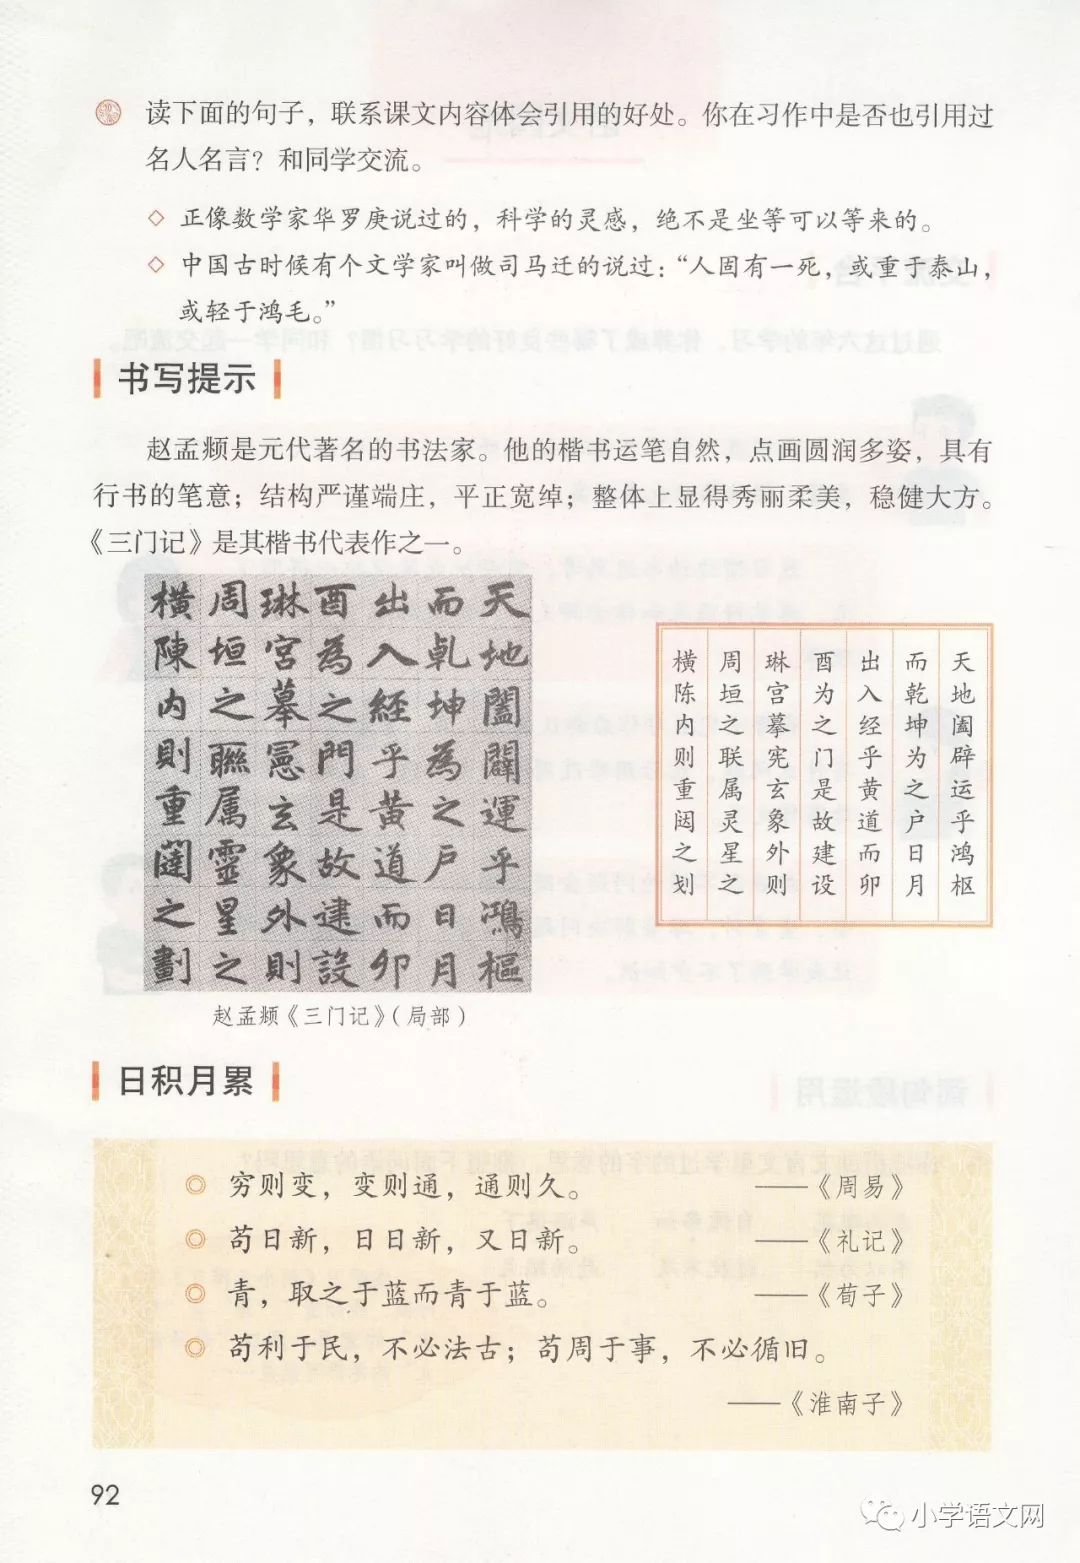 读下面的句子，联系课文内容体会引用的好处。你在习作中是否也引用过
名人名言？和同学交流。
◇ 正像数学家华罗庚说过的，科学的灵感，绝不是坐等可以等来的。
◇ 中国古时候有个文学家叫做司马迁的说过：“人固有一死，或重于泰山，
或轻于鸿毛。”
书写提示
赵孟𫖯是元代著名的书法家。他的楷书运笔自然，点画圆润多姿，具有
行书的笔意；结构严谨端庄，平正宽绰；整体上显得秀丽柔美，稳健大方。
《三门记》是其楷书代表作之一。
天地闔闢運乎鴻樞
而乹坤為之戶日月
出入經乎黄道而卯
酉為之門是故建設
琳宮摹憲玄象外則
周垣之聮属靈星之
橫陳內則重闥之劃
天地阖辟运乎鸿枢
而乾坤为之户日月
出入经乎黄道而卯
酉为之门是故建设
琳宫摹宪玄象外则
周垣之联属灵星之
横陈内则重闼之划
赵孟𫖯《三门记》（局部）
日积月累
◎ 穷则变，变则通，通则久。 ——《周易》
◎ 苟日新，日日新，又日新。 ——《礼记》
◎ 青，取之于蓝而青于蓝。 ——《荀子》
◎ 苟利于民，不必法古；苟周于事，不必循旧。
——《淮南子》
92
小学语文网